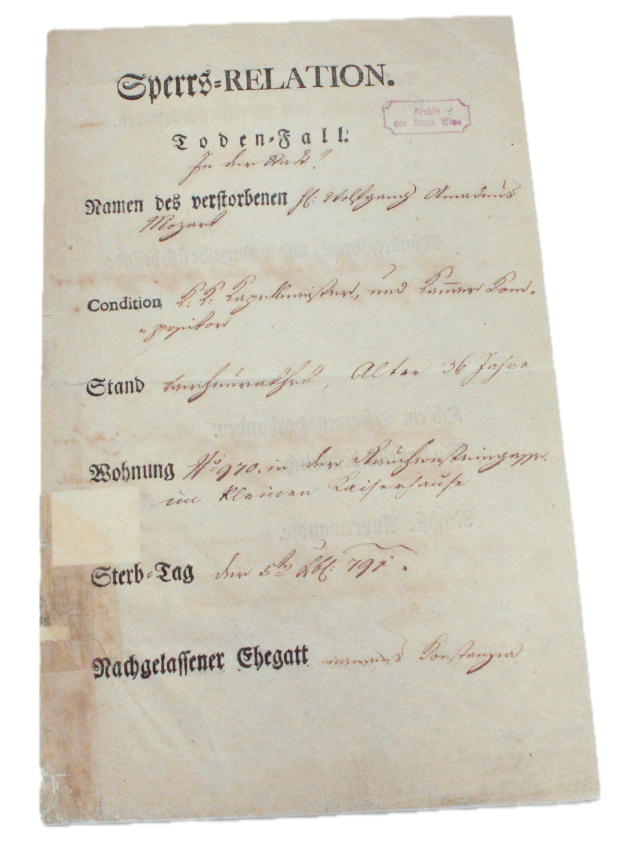 Sperrs=RELATION.
Archiv
der Stadt Wien
Toden=Fall.
In der Stadt!
Namen des verstorbenen H: Wolfgang Amadeus
Mozart
Condition K: K: Kapellmeister, und Kammer Kom=
=positor
Stand verheurathet, Alter 36 Jahre
Wohnung No 970. in der Rauhensteingasse.
im kleinen Kaiserhause
Sterb=Tag der 5te Xbr: 791.
Nachgelassener Ehegatt namens Konstanzia